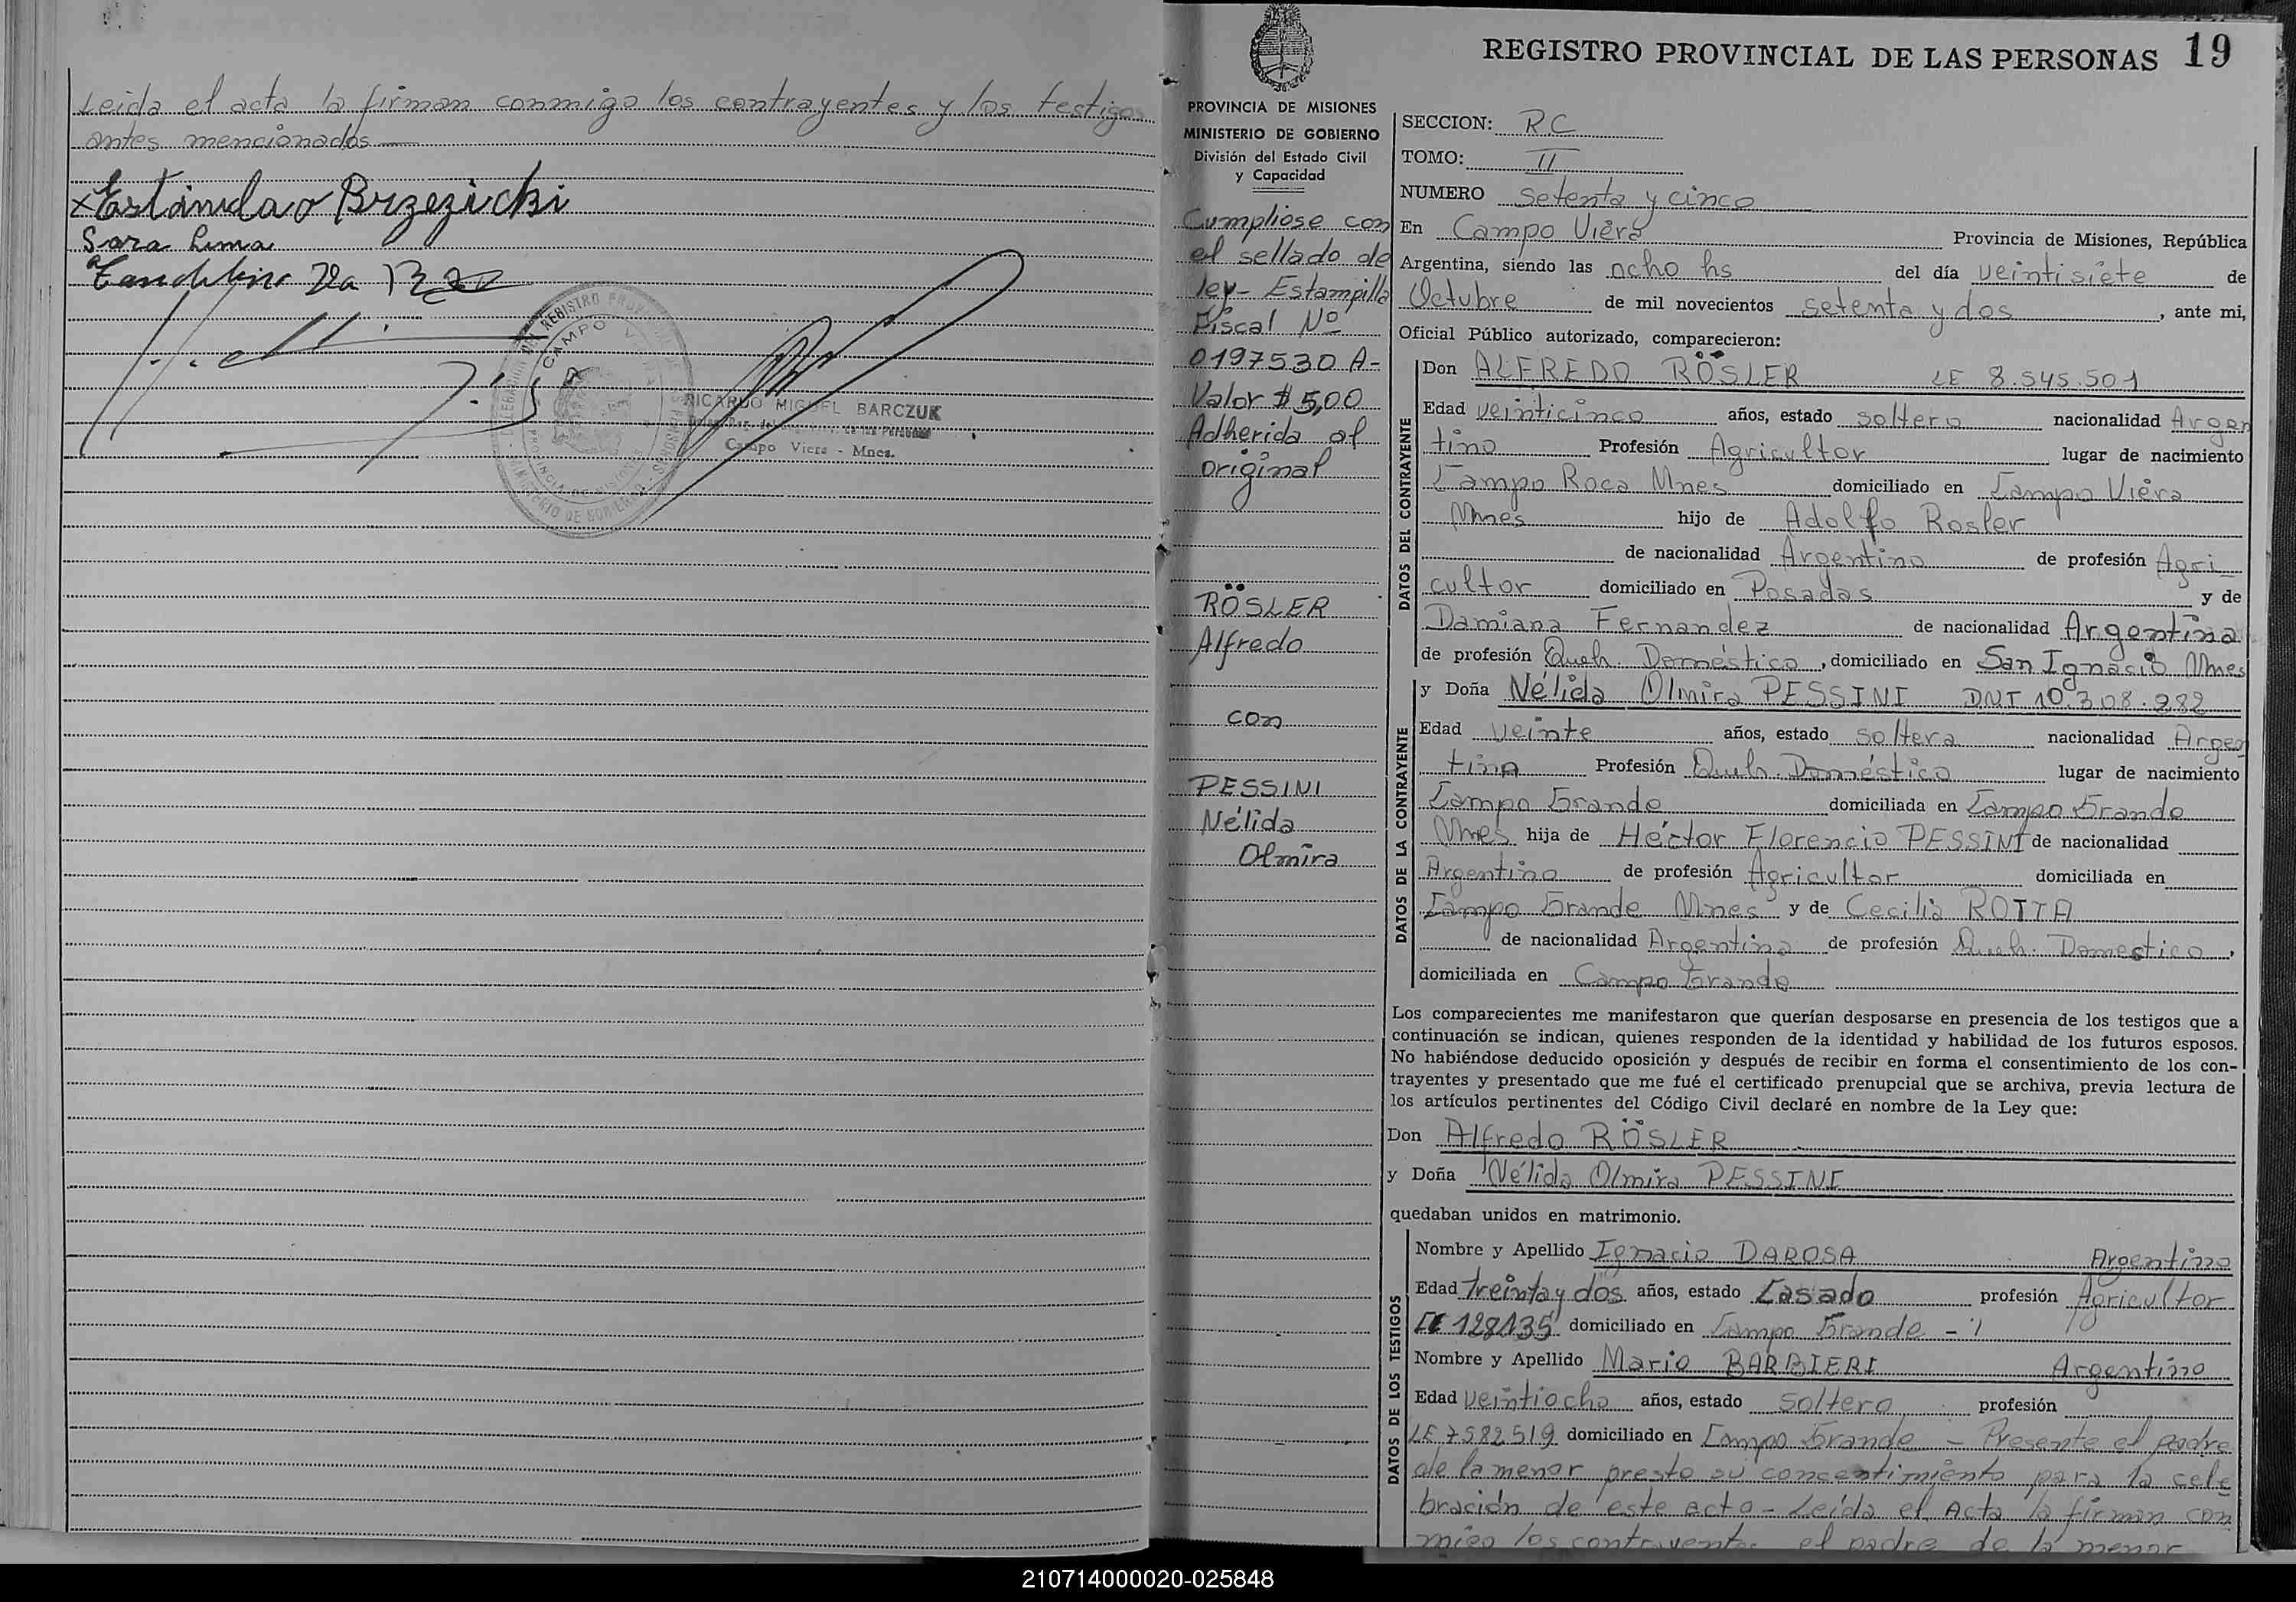 Leida el acta la firman conmigo los contrayentes y los testigos
antes mencionados
x Estanislao Brzezicki
Sara Lima
REGISTRO PROVINCIAL DE LAS PERSONAS
CAMPO VIERA
PROVINCIA DE MISIONES
MINISTERIO DE GOBIERNO
RICARDO MIGUEL BARCZUK
Campo Viera - Mnes.
REGISTRO PROVINCIAL DE LAS PERSONAS 19
PROVINCIA DE MISIONES
MINISTERIO DE GOBIERNO
División del Estado Civil
y Capacidad
Cumpliose con
el sellado de
ley - Estampilla
Fiscal Nº
0197530 A-
Valor $ 5,00
Adherida al
original
RÖSLER
Alfredo
con
PESSINI
Nélida
Olmira
SECCION: R.C
TOMO: II
NUMERO setenta y cinco
En Campo Viera Provincia de Misiones, República
Argentina, siendo las ocho hs del día veintisiete de
Octubre de mil novecientos setenta y dos, ante mi,
Oficial Público autorizado, comparecieron:
DATOS DEL CONTRAYENTE
Don ALFREDO RÖSLER LE 8.545.501
Edad veinticinco años, estado soltero nacionalidad Argen
tino Profesión Agricultor lugar de nacimiento
Campo Roca Mnes domiciliado en Campo Viera
Mnes hijo de Adolfo Rosler
de nacionalidad Argentino de profesión Agri-
cultor domiciliado en Posadas y de
Damiana Fernandez de nacionalidad Argentina
de profesión Queh. Doméstico, domiciliado en San Ignacio Mnes
DATOS DE LA CONTRAYENTE
y Doña Nélida Olmira PESSINI DNI 10.308.982
Edad veinte años, estado soltera nacionalidad Argen
tina Profesión Queh. Doméstico lugar de nacimiento
Campo Grande domiciliada en Campo Grande
Mnes hija de Héctor Florencio PESSINI de nacionalidad
Argentino de profesión Agricultor domiciliada en
Campo Grande Mnes y de Cecilia ROTTA
de nacionalidad Argentina de profesión Queh. Domestico,
domiciliada en Campo Grande
Los comparecientes me manifestaron que querían desposarse en presencia de los testigos que a
continuación se indican, quienes responden de la identidad y habilidad de los futuros esposos.
No habiéndose deducido oposición y después de recibir en forma el consentimiento de los con-
trayentes y presentado que me fué el certificado prenupcial que se archiva, previa lectura de
los artículos pertinentes del Código Civil declaré en nombre de la Ley que:
Don Alfredo RÖSLER
y Doña Nélida Olmira PESSINI
quedaban unidos en matrimonio.
DATOS DE LOS TESTIGOS
Nombre y Apellido Ignacio DAROSA Argentino
Edad treinta y dos años, estado Casado profesión Agricultor
CI 128135 domiciliado en Campo Grande -
Nombre y Apellido Mario BARBIERI Argentino
Edad veintiocho años, estado soltero profesión
LE 7582519 domiciliado en Campo Grande - Presente el padre
de la menor presto su concentimiento para la cele
bración de este acto - Leida el Acta la firman con
migo los contrayentes el padre de la menor
210714000020-025848